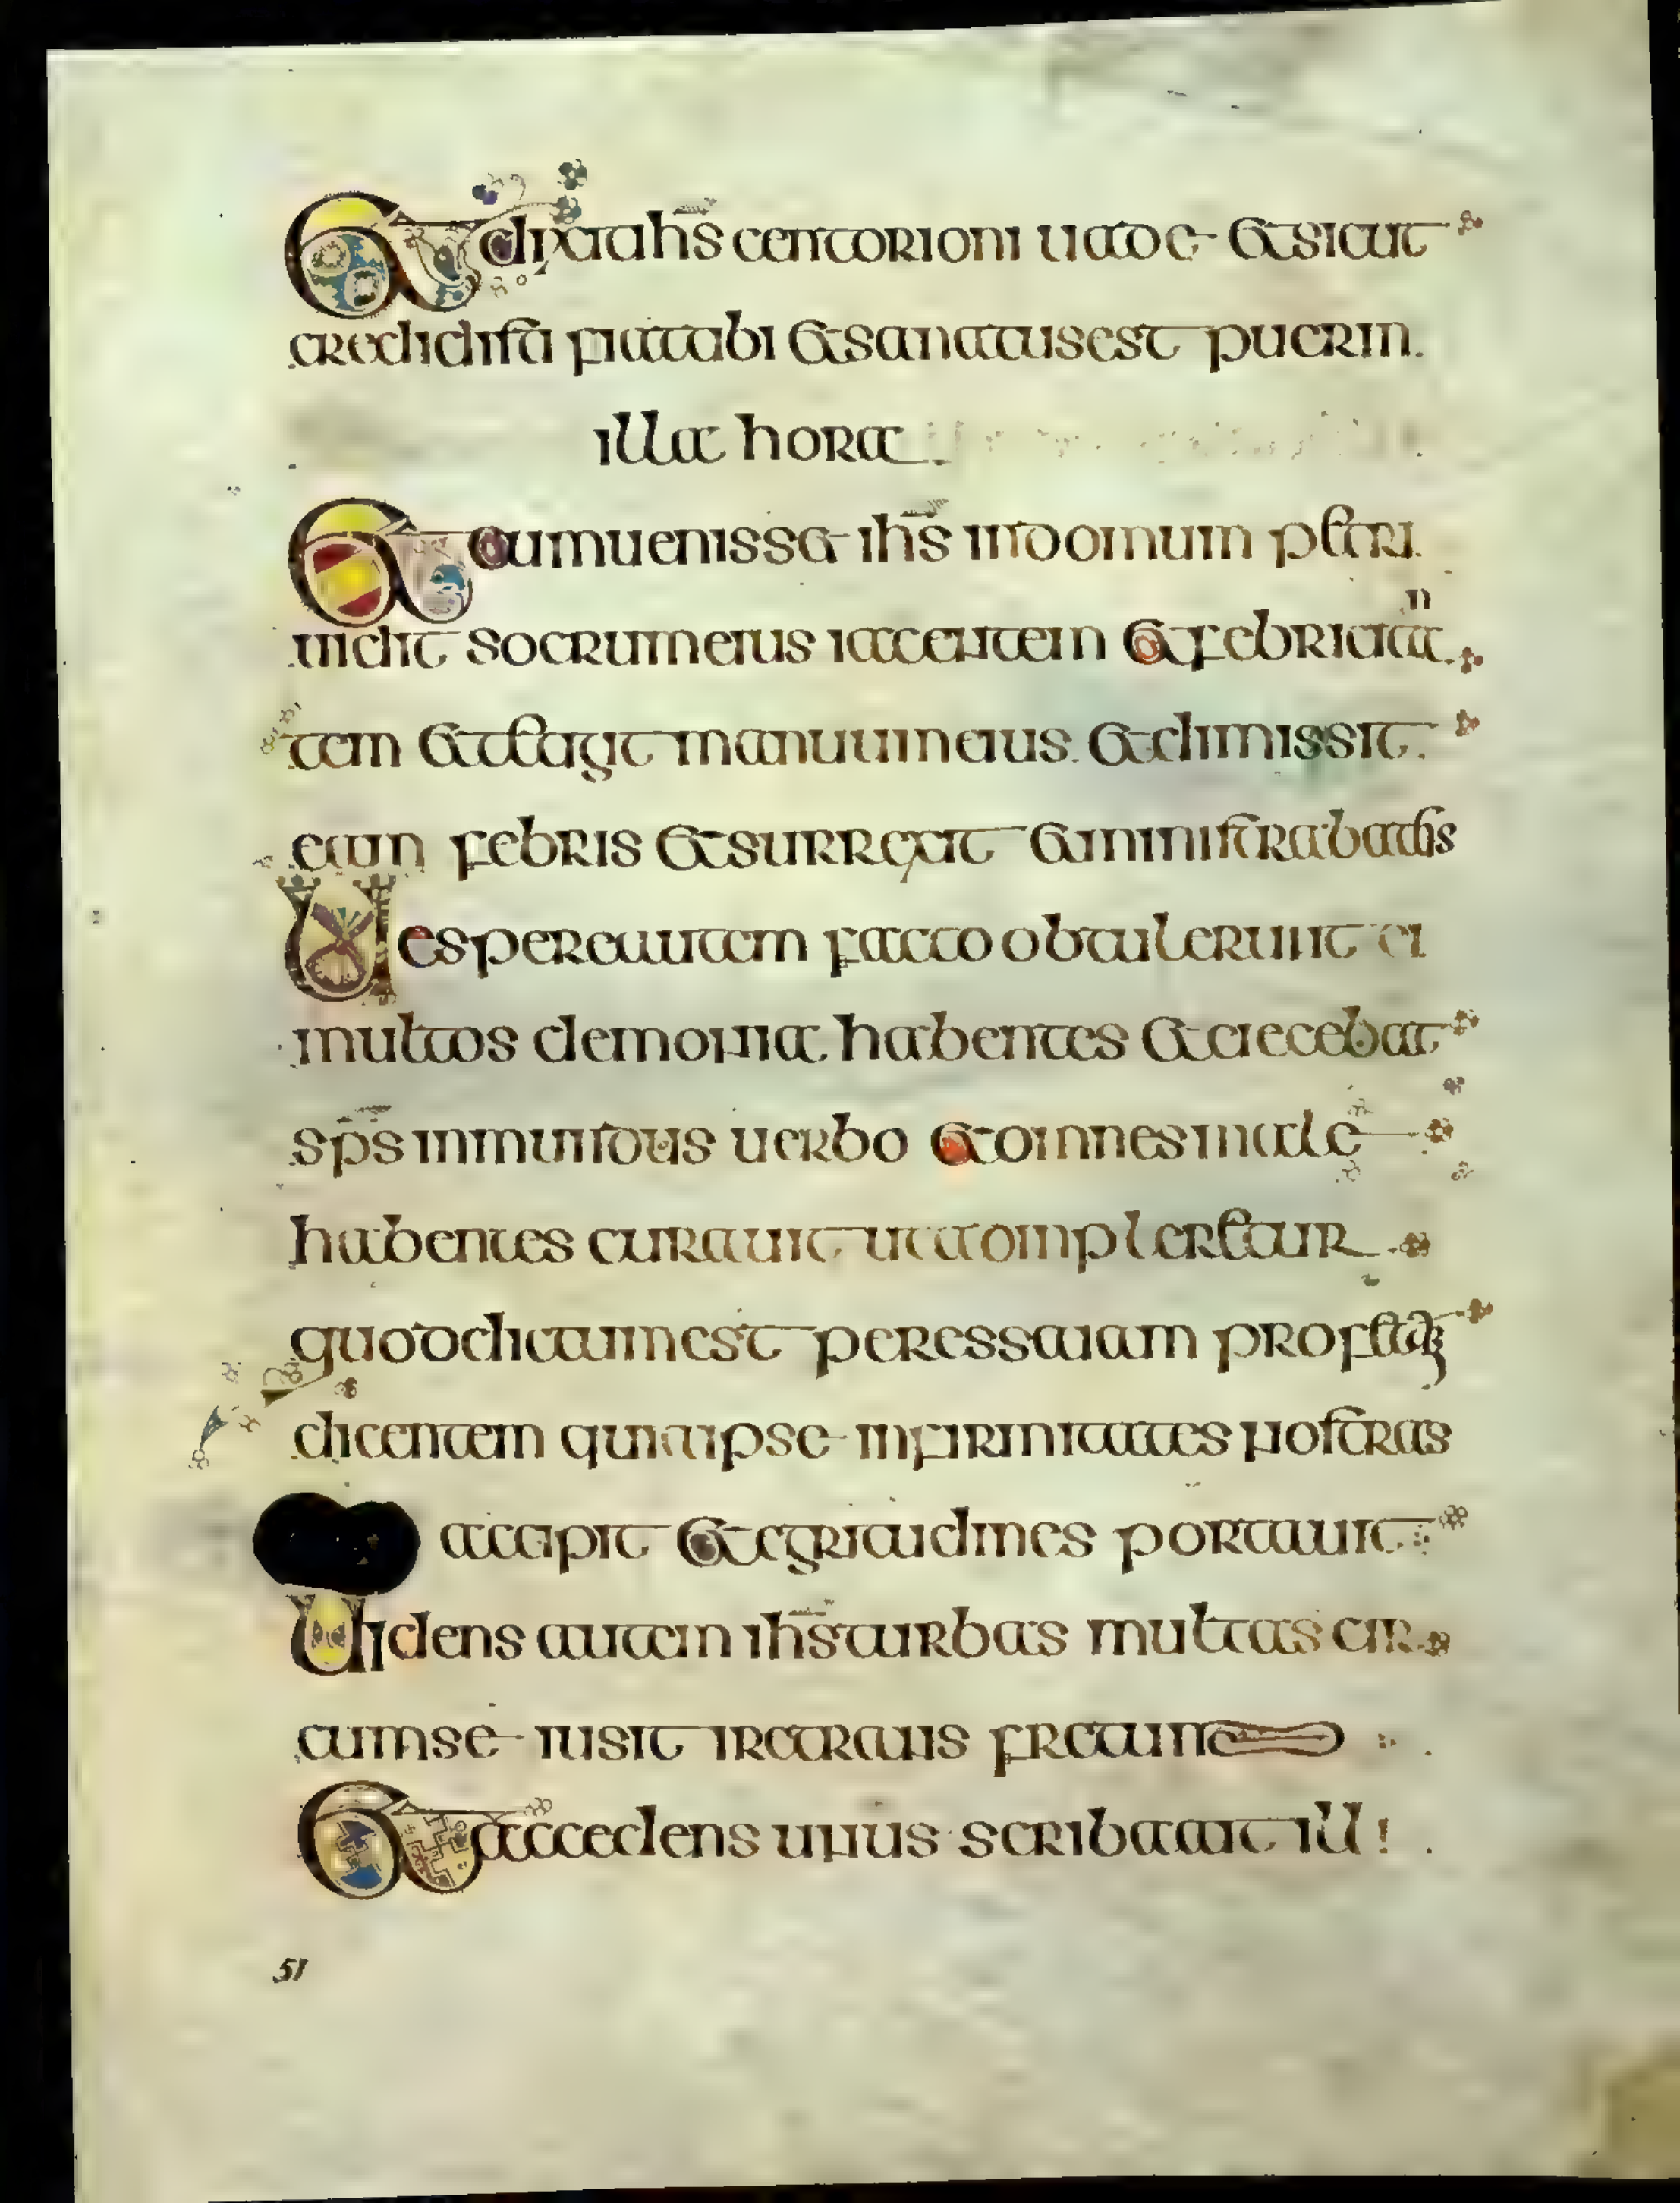 Et dixit ihs centorioni uade et sicut
credidisti fiat tibi et sanatus est puer in
illa hora
Et cum uenisset ihs in domum petri
uidit socrum eius iacentem et febricitan
tem et tetigit manuum eius et dimissit
eam febris et surrexit et ministrabat eis
Uespere autem facto obtulerunt ei
multos demonia habentes et eiecebat
sps inmundus uerbo et omnes male
habentes curauit ut adompleretur
quod dictum est per essaiam profetam
dicentem quia ipse infirmitates nostras
accipit et egritudines portauit
Uidens autem ihs turbas multas cir
cum se iusit ire trans fretum
Et accedens unus scriba ait illi
51